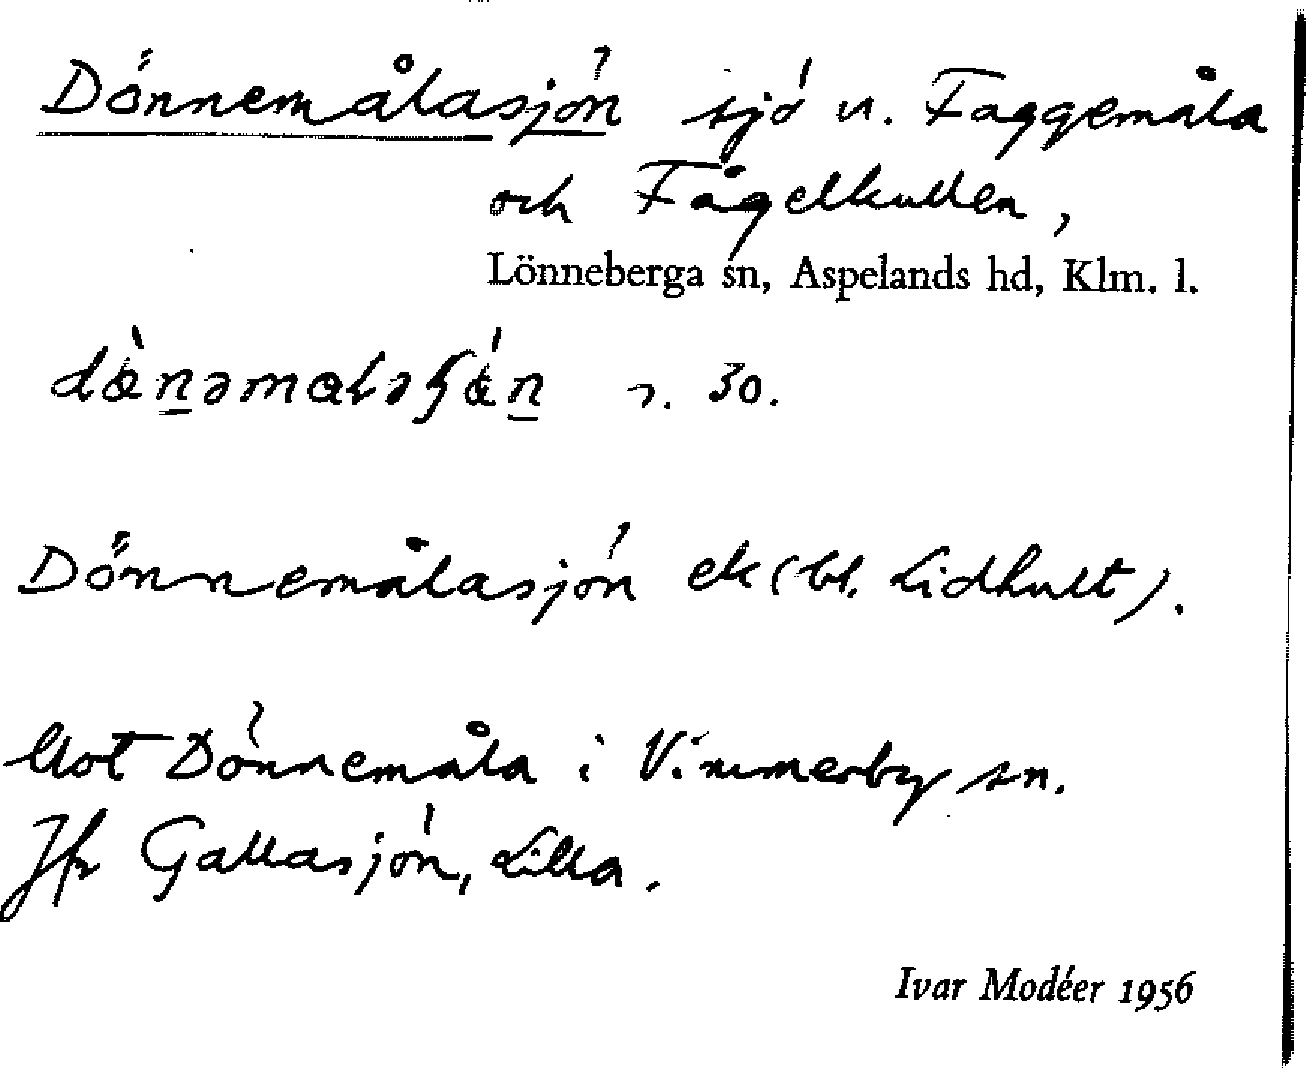 Dönnemålasjön sjö n. Faggemåla
och Fågelkullen,
Lönneberga sn, Aspelands hd, Klm. l.
dǿn̲əmɑləʃǿn̲ n. 30.
Dönnemålasjön ek (bl. Lidhult).
Mot Dönnemåla i Vimmerby sn.
Jfr Gallasjön, Lilla.
Ivar Modéer 1956